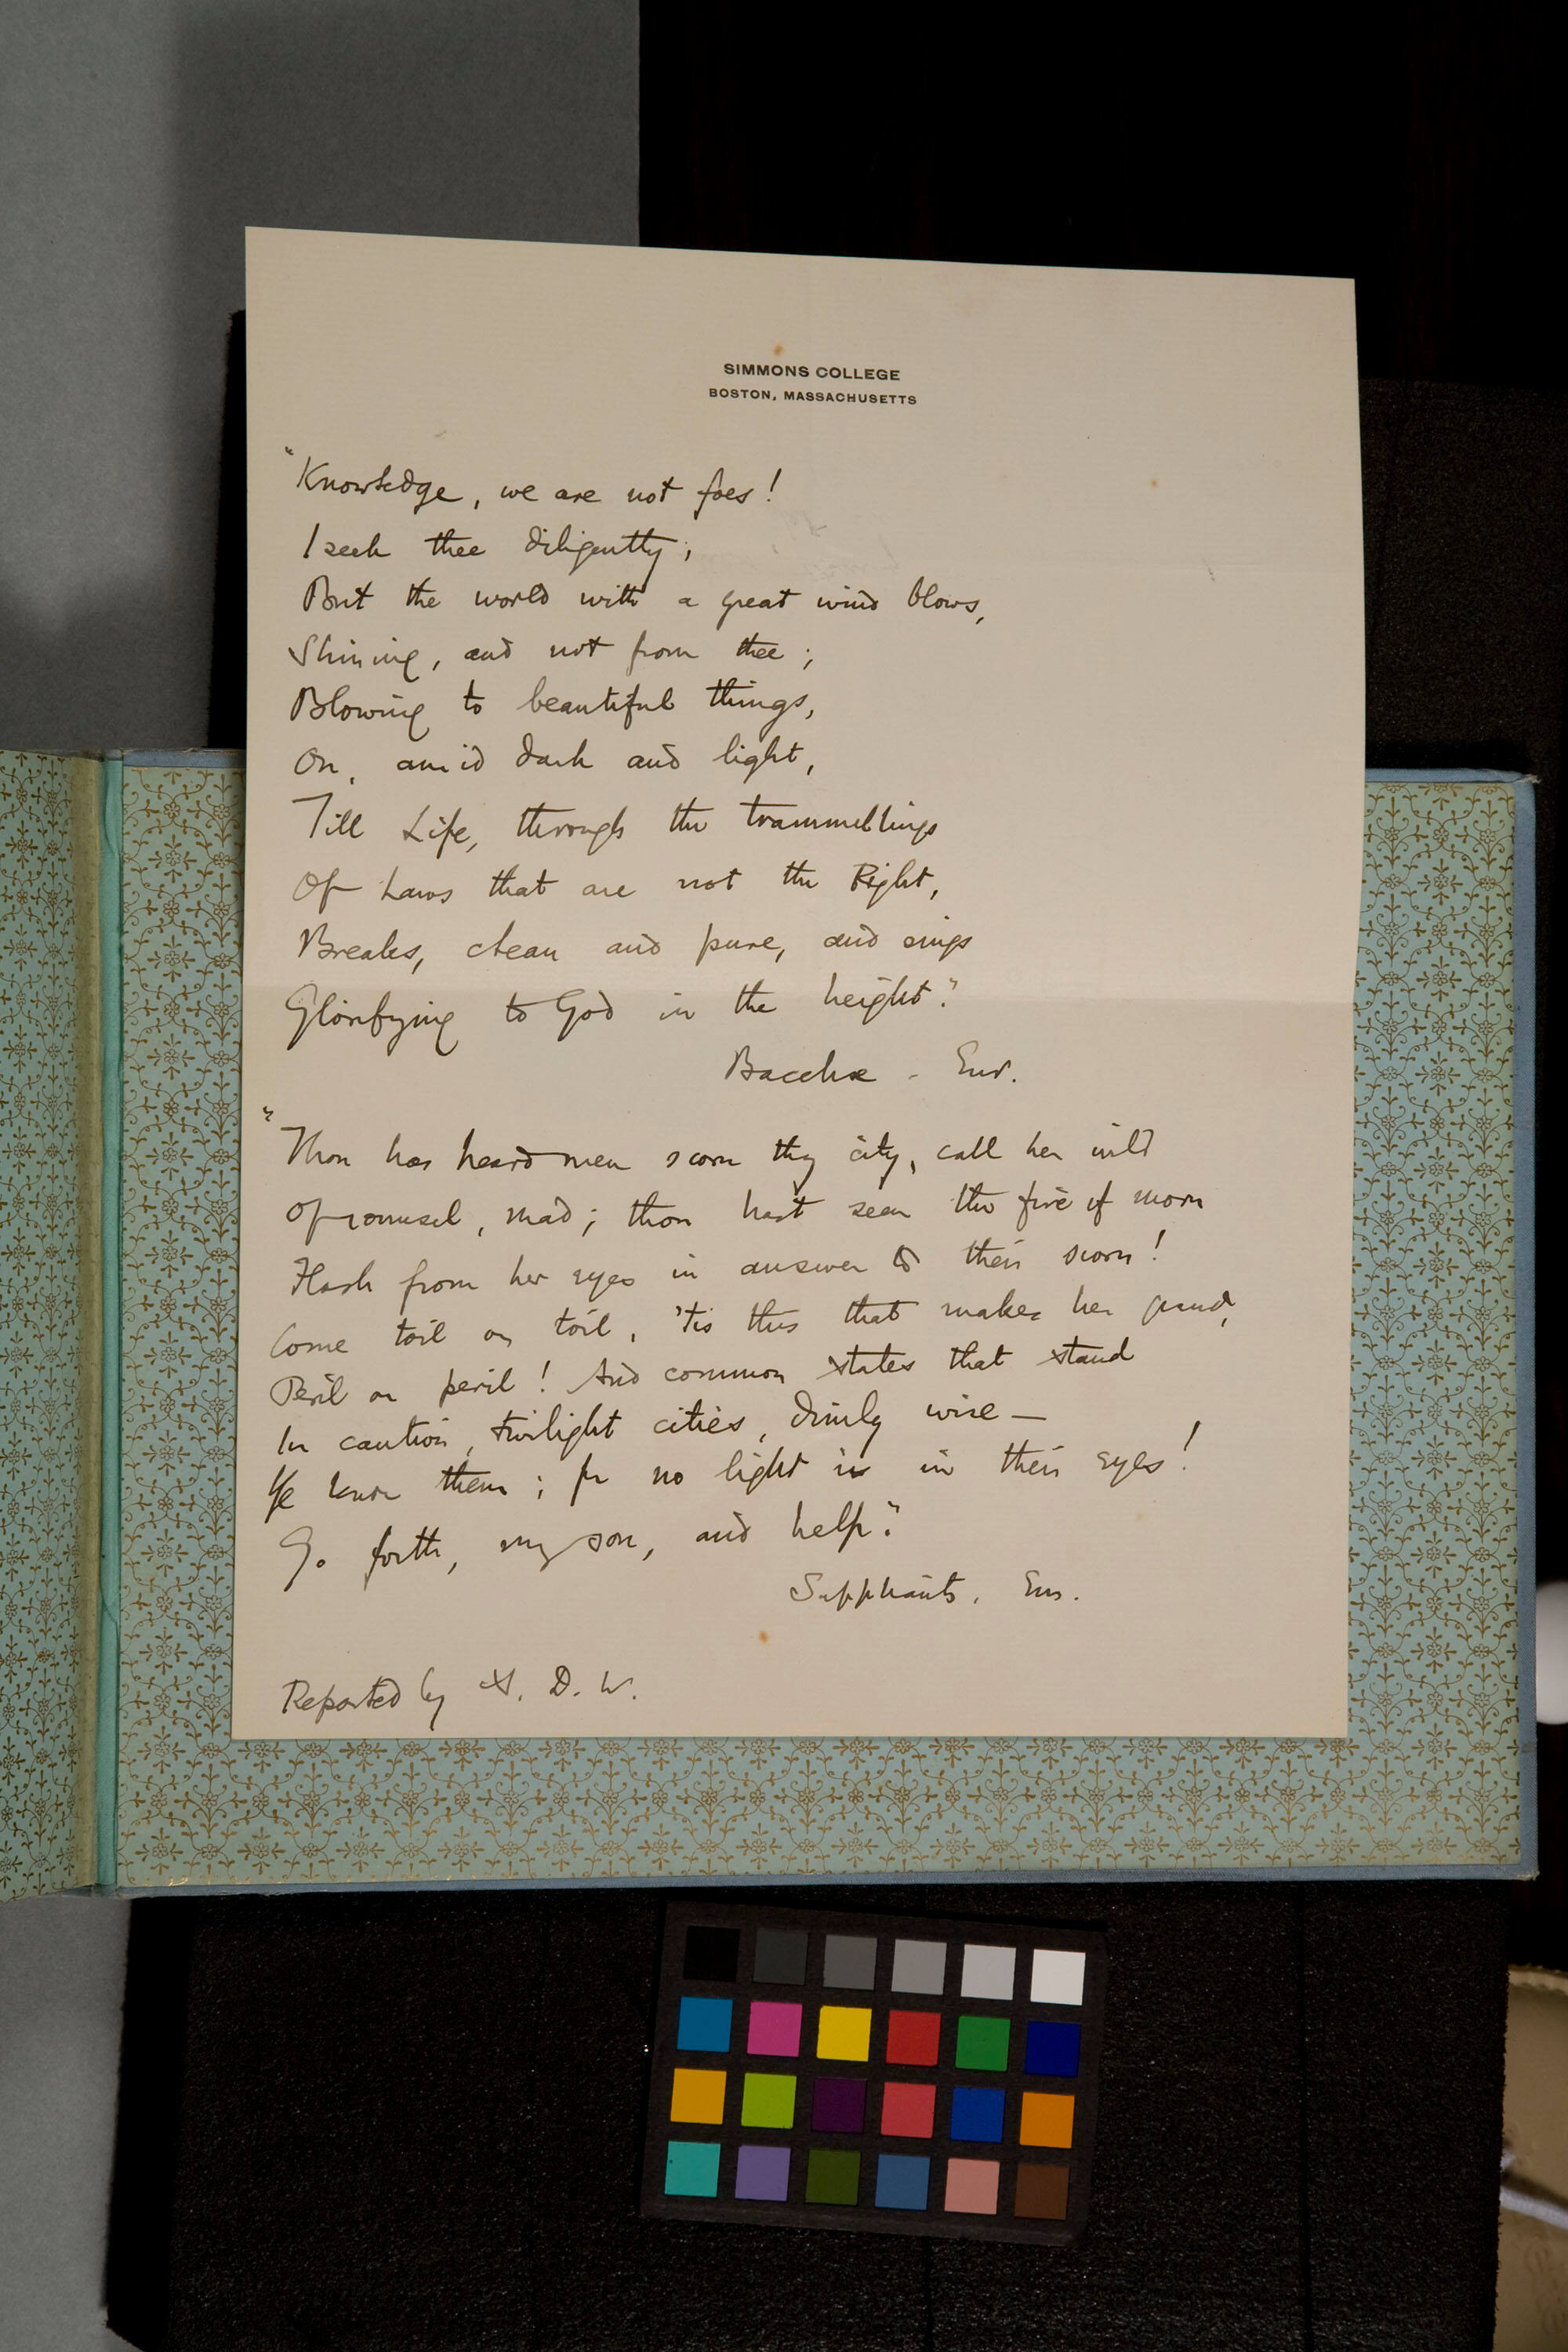 SIMMONS COLLEGE
BOSTON, MASSACHUSETTS
"Knowledge, we are not foes!
I seek thee diligently;
But the world with a great wind blows,
Shining, and not from thee;
Blowing to beautiful things,
On, amid dark and light,
Till Life, through the trammellings
Of Laws that are not the Right,
Breaks, clean and pure, and sings
Glorifying to God in the height."
Bacchae - Eur.
"Thou has heard men scorn thy city, call her wild
Of counsel, mad; thou hast seen the fire of morn
Flash from her eyes in answer to their scorn!
Come toil on toil, 'tis this that makes her grand,
Peril on peril! And common states that stand
In caution, twilight cities, dimly wise—
Ye know them; for no light is in their eyes!
Go forth, my son, and help."
Suppliants, Eur.
Reported by A. D. W.